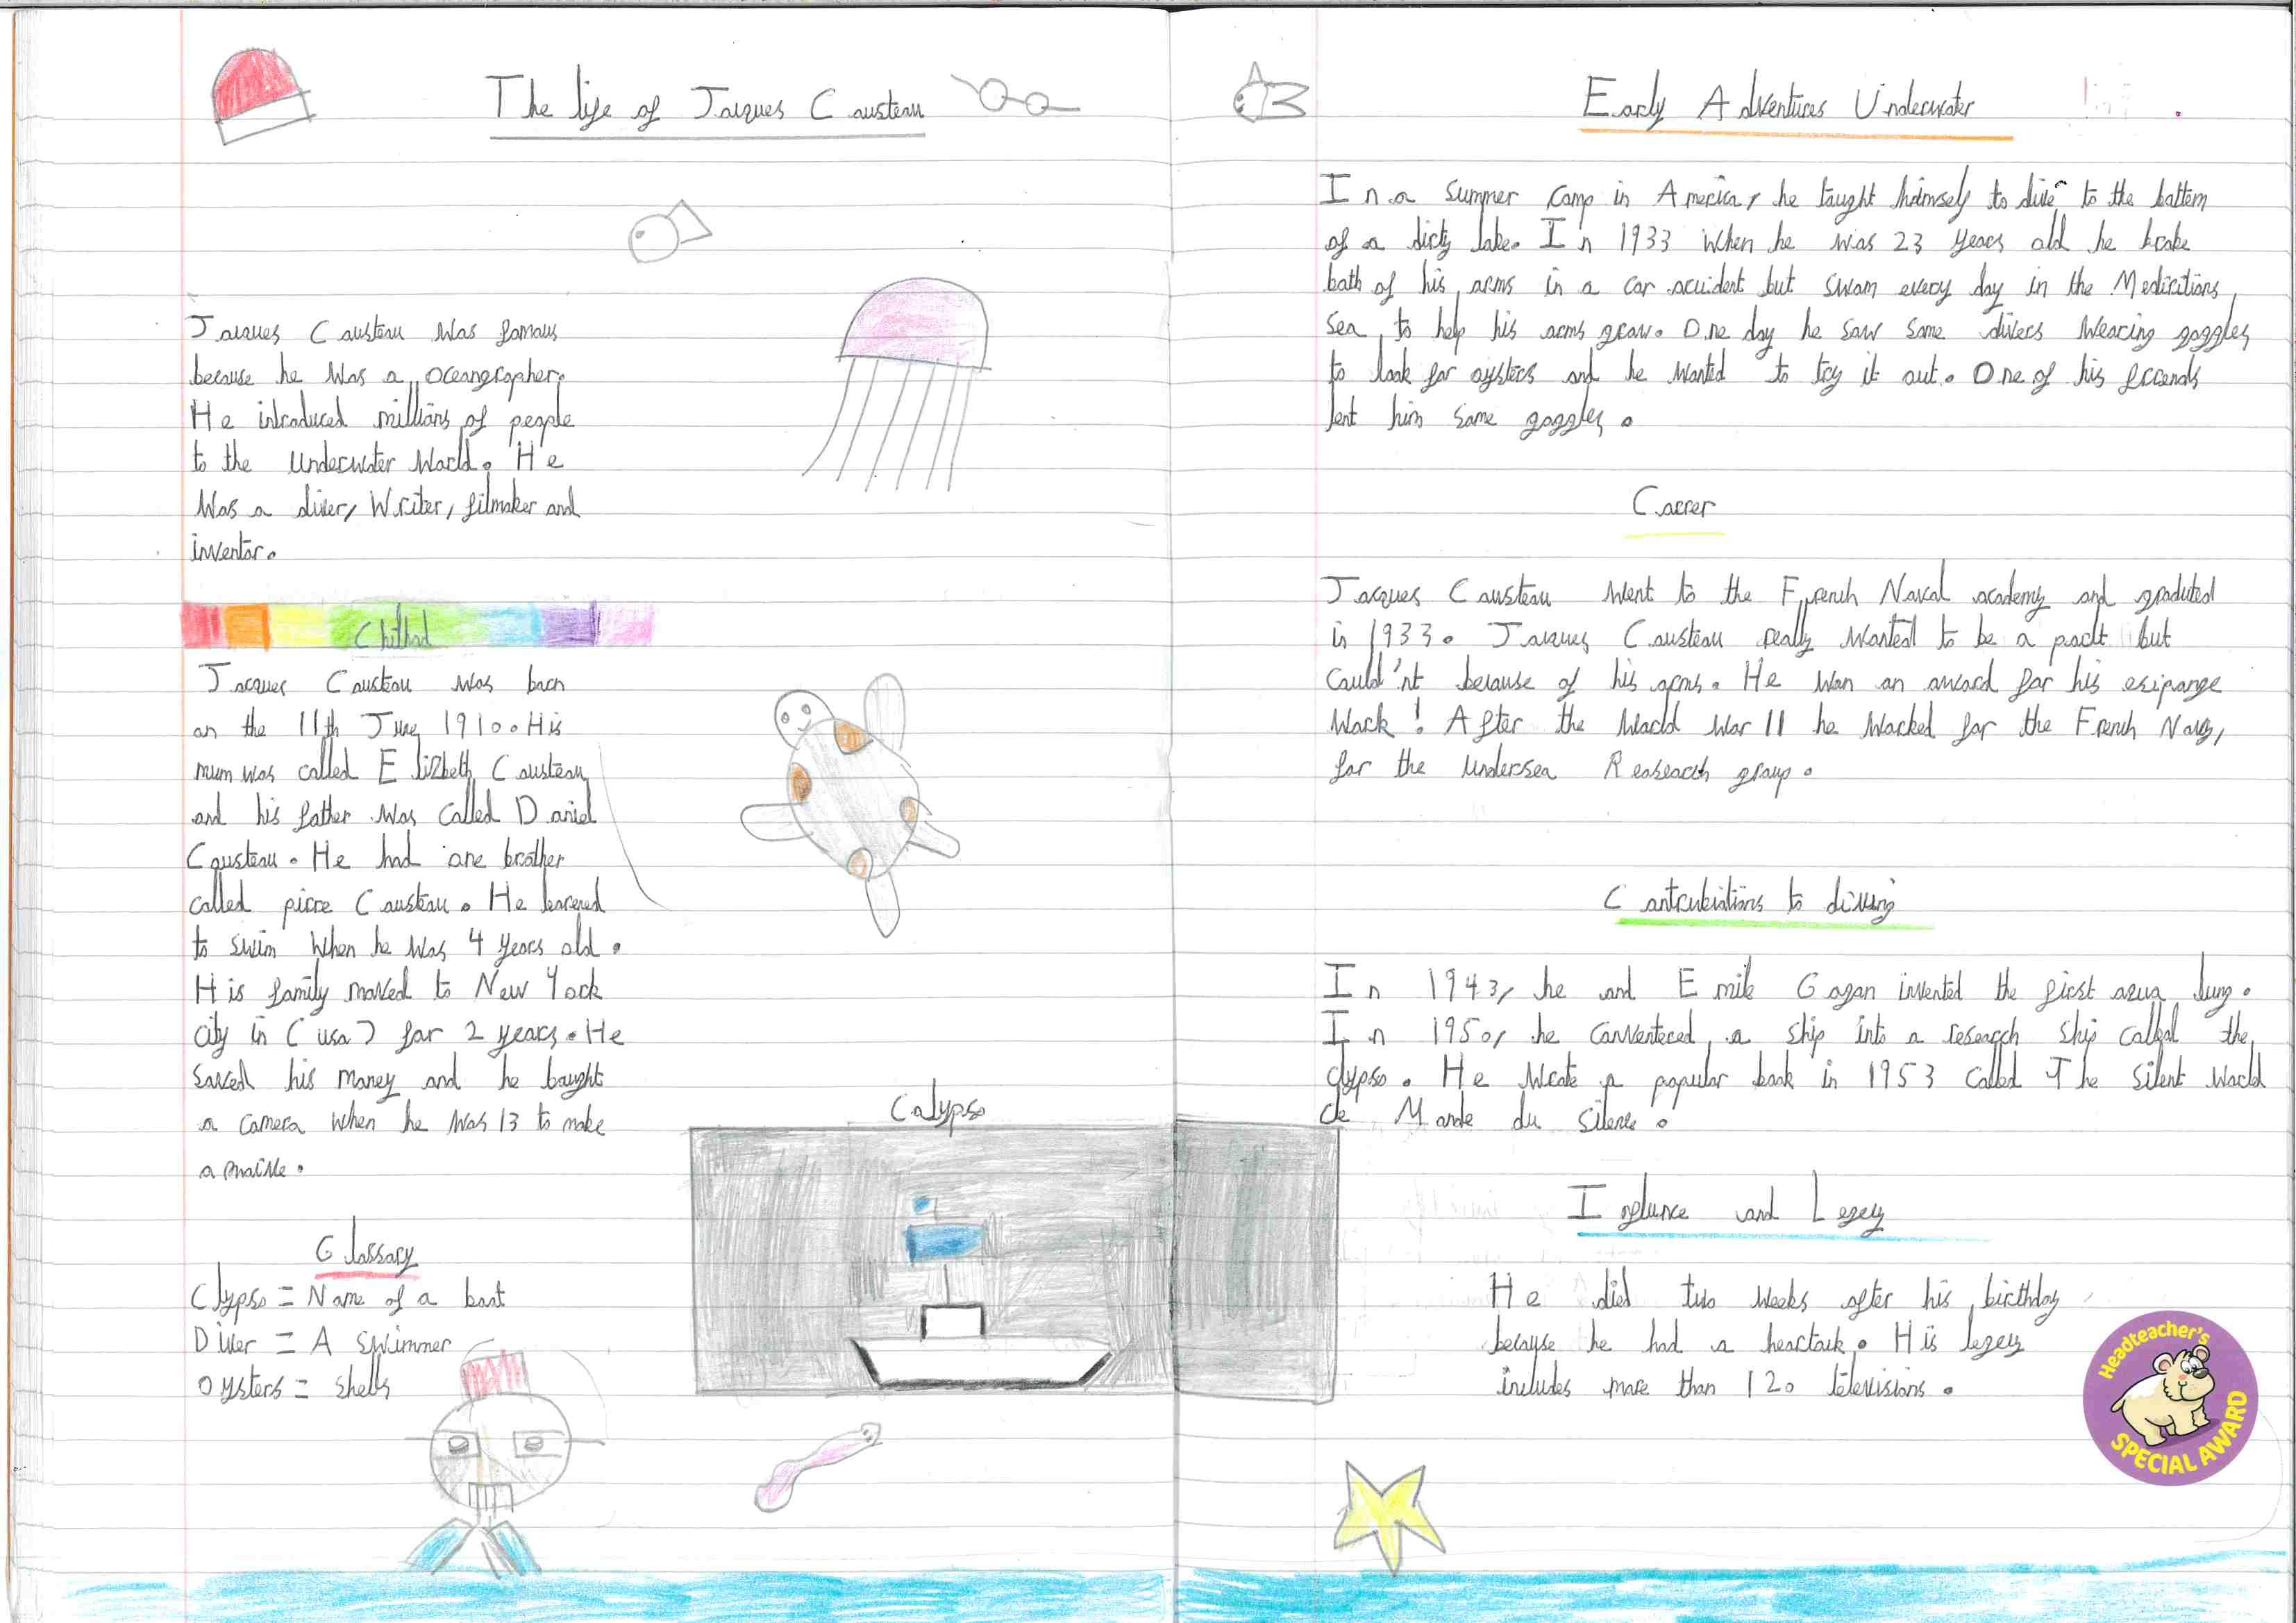 The life of Jacques Causteau
Jacques Causteau was famous
because he was a oceangrapher.
He introduced millions of people
to the underwater World. He
Was a diver, Writer, filmaker and
inventor.
Chilhod
Jacques Causteau was born
on the 11th June 1910. His
mum was called Elizbeth Causteau
and his father was called Daniel
Causteau. He had one brother
called pirre Causteau. He learened
to swim when he was 4 years old.
His family moved to New York
city in (usa) for 2 years. He
saved his money and he bought
a camera when he was 13 to make
a
Glossary
Clypso = Name of a boat
Diver = A swimmer
Oysters = shells
Calypso
Early Adventures Underwater
In a summer camp in America, he taught himself to dive to the bottem
of a dirty lake. In 1933 when he was 23 years old he broke
both of his arms in a car accident but swam every day in the
sea to help his arms grow. One day he saw some divers wearing goggles
to look for oysters and he wanted to try it out. One of his friends
lent him some goggles.
Carrer
Jacques Causteau went to the French Naval academy and graduted
in 1933. Jacques Causteau really wanted to be a but
could'nt because of his arms. He won an award for his
work! After the World War II he worked for the French Navy,
for the undersea group.
to diving
In 1943, he and Emile Gagan invented the first aqua lung.
In 1950, he a ship into a research ship called the
clypso. He wrote a popular book in 1953 called The silent world
de Monde du silence.
Influnce and Legecy
He died two weeks after his birthday
because he had a heartack. His legecy
includes more than 120 televisions.
Headteacher's
SPECIAL AWARD